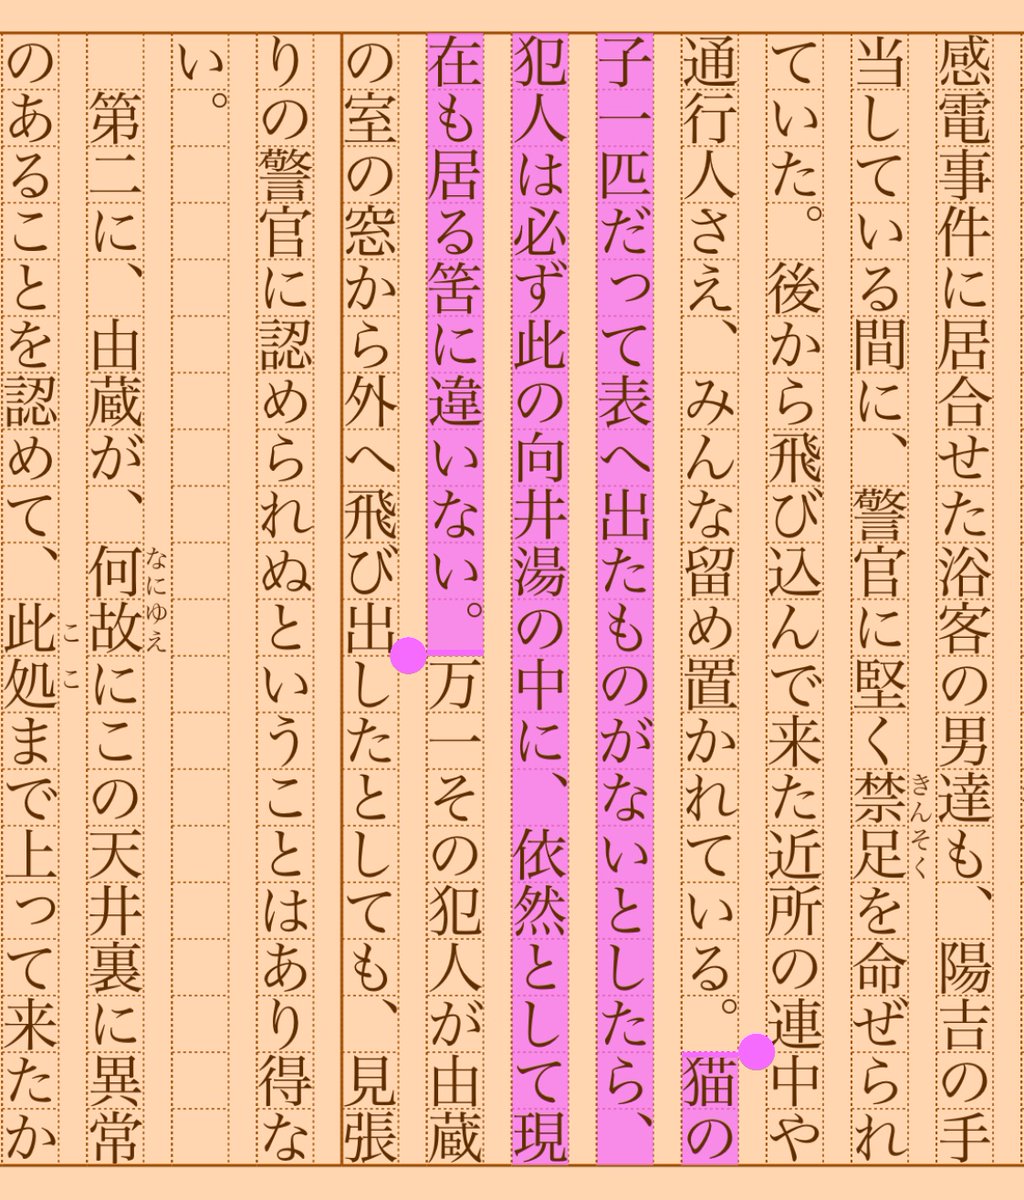 感電事件に居合せた浴客の男達も、陽吉の手
当している間に、警官に堅く禁足を命ぜられ
きんそく
ていた。後から飛び込んで来た近所の連中や
通行人さえ、みんな留め置かれている。猫の
子一匹だって表へ出たものがないとしたら、
犯人は必ず此の向井湯の中に、依然として現
在も居る筈に違いない。万一その犯人が由蔵
の室の窓から外へ飛び出したとしても、見張
りの警官に認められぬということはあり得な
い。
第二に、由蔵が、何故にこの天井裏に異常
なにゆえ
のあることを認めて、此処まで上って来たか
ここ